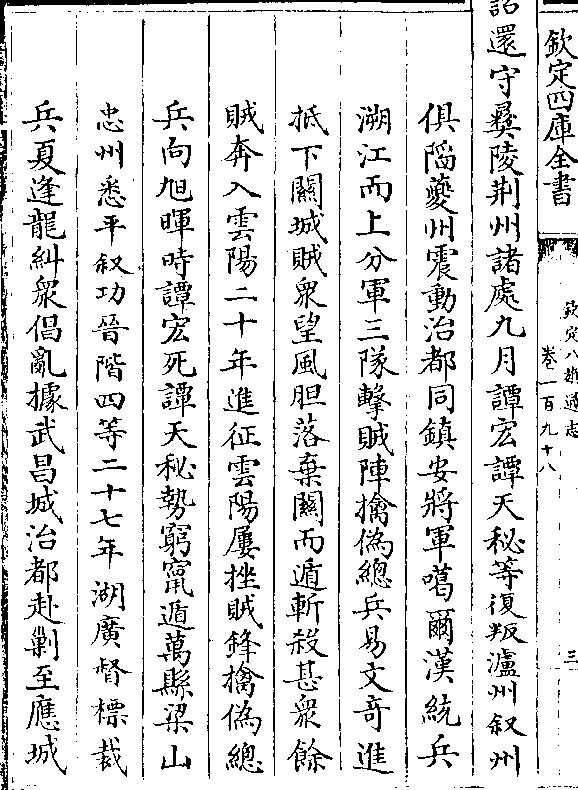 欽定四庫全書
欽定八旗通志
卷一百九十八
三
詔還守彝陵荆州諸處九月譚宏譚天秘等復叛瀘州叙州
俱陷夔州震動治都同鎮安將軍噶爾漢統兵
溯江而上分軍三隊擊賊陣擒偽總兵易文竒進
抵下關城賊衆望風胆落棄關而遁斬殺甚衆餘
賊奔入雲陽二十年進征雲陽屢挫賊鋒擒偽總
兵向旭暉時譚宏死譚天秘勢窮竄遁萬縣梁山
忠州悉平叙功晉階四等二十七年湖廣督標裁
兵夏逢龍糾衆倡亂據武昌城治都赴剿至應城